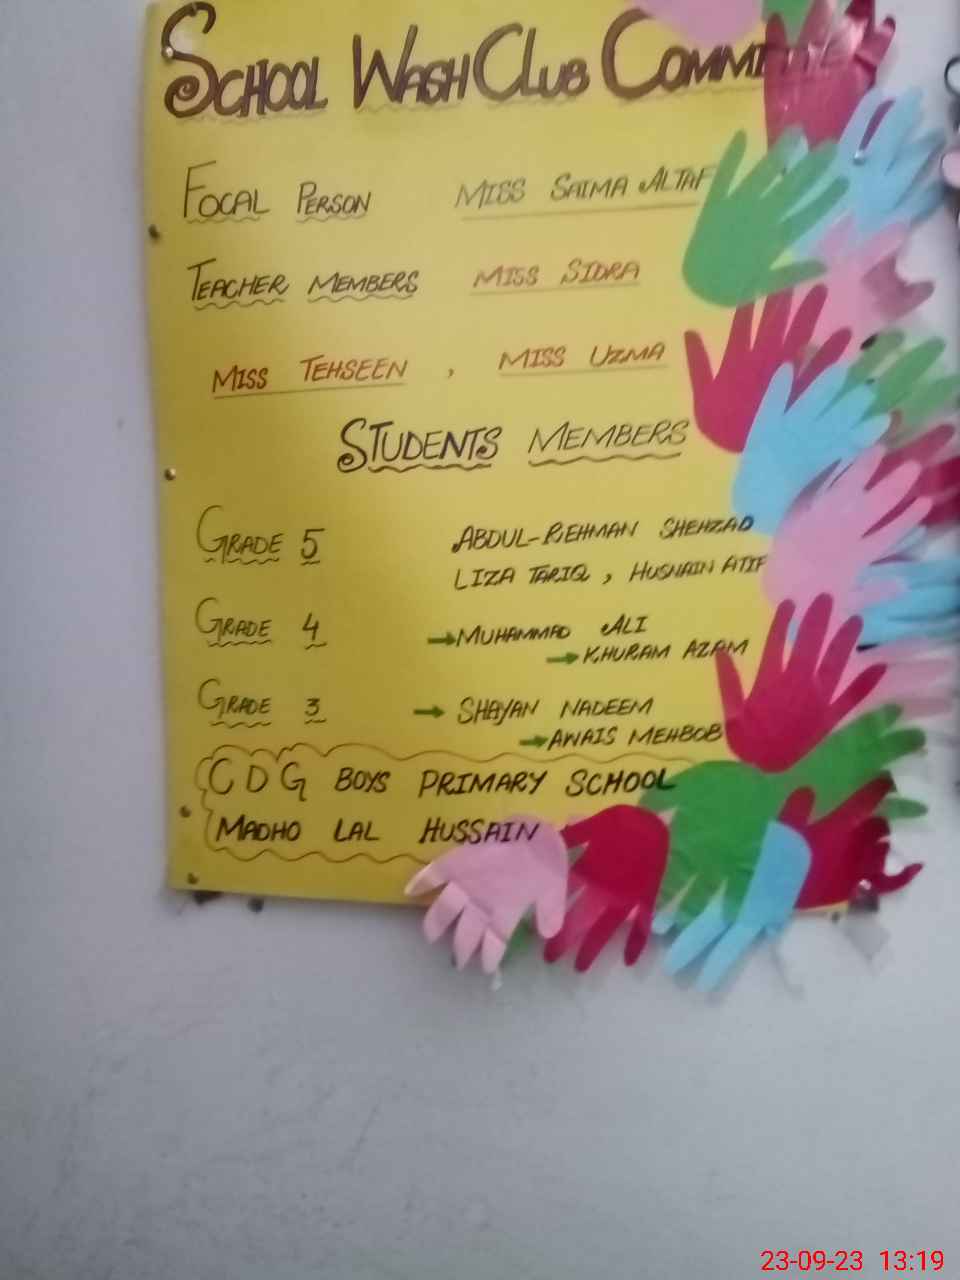 SCHOOL WASH CLUB COMMITTEE
FOCAL PERSON MISS SAIMA ALTAF
TEACHER MEMBERS MISS SIDRA
MISS TEHSEEN , MISS UZMA
STUDENTS MEMBERS
GRADE 5 ABDUL-REHMAN SHEHZAD
LIZA TARIQ , HUSNAIN ATIF
GRADE 4 → MUHAMMAD ALI
→ KHURAM AZAM
GRADE 3 → SHAYAN NADEEM
→ AWAIS MEHBOB
C D G BOYS PRIMARY SCHOOL
MADHO LAL HUSSAIN
23-09-23 13:19